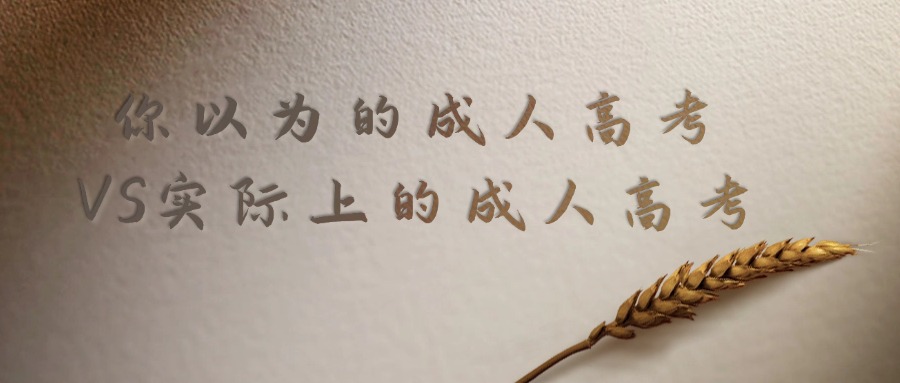 你以为的成人高考
VS实际上的成人高考